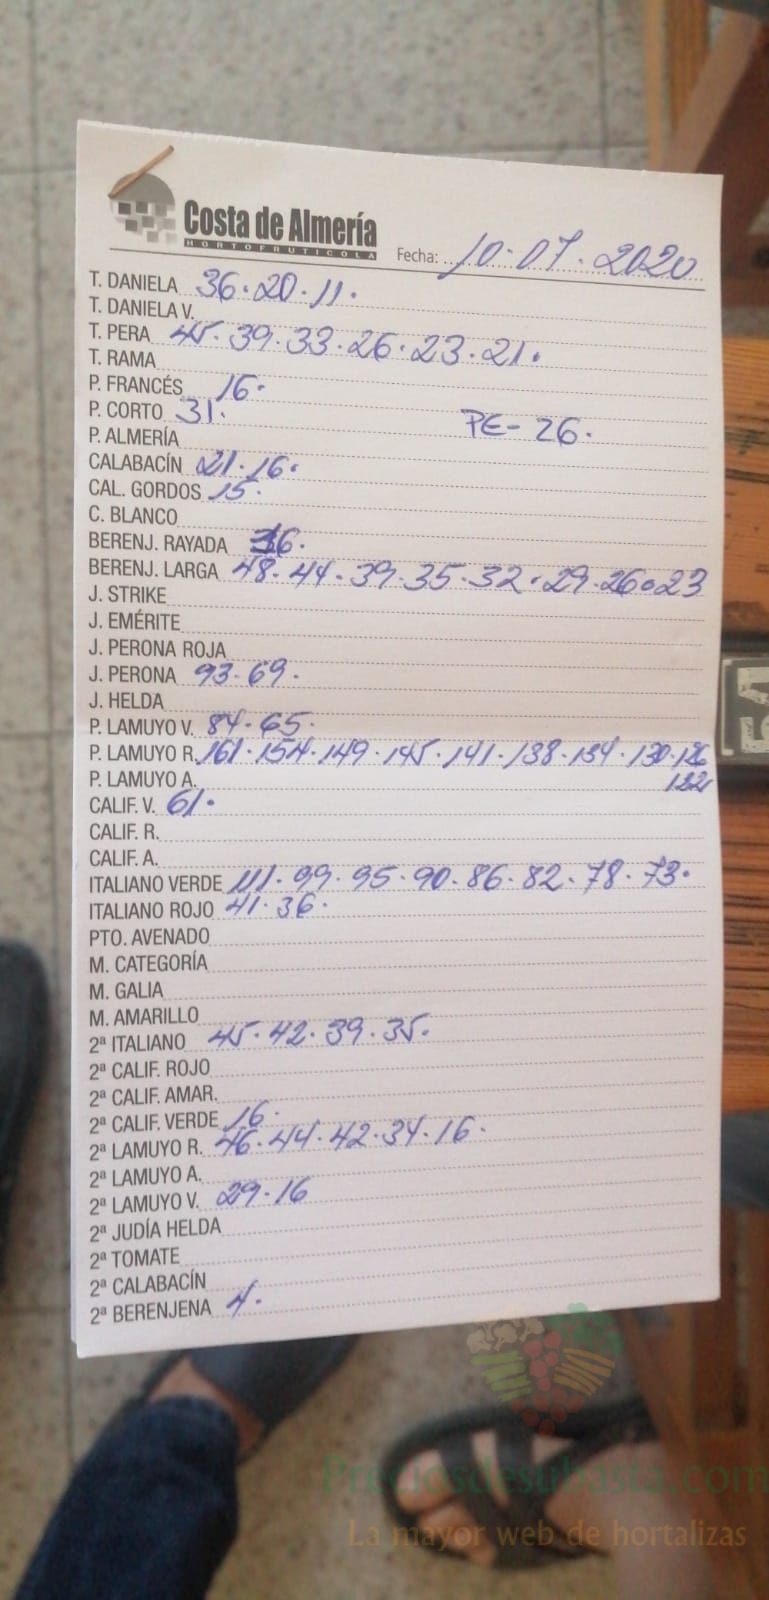 Costa de Almería
HORTOFRUTICOLA
Fecha: 10.07.2020
T. DANIELA 36.20.11.
T. DANIELA V.
T. PERA 45.39.33.26.23.21.
T. RAMA
P. FRANCÉS 16.
P. CORTO 31. PE-26.
P. ALMERÍA
CALABACÍN 21.16.
CAL. GORDOS 15.
C. BLANCO
BERENJ. RAYADA 36.
BERENJ. LARGA 48.44.39.35.32.29.26.23
J. STRIKE
J. EMÉRITE
J. PERONA ROJA
J. PERONA 93.69.
J. HELDA
P. LAMUYO V. 84.65.
P. LAMUYO R. 161.154.149.145.141.138.134.130.126
P. LAMUYO A. 122
CALIF. V. 61.
CALIF. R.
CALIF. A.
ITALIANO VERDE 111.99.95.90.86.82.78.73.
ITALIANO ROJO 41.36.
PTO. AVENADO
M. CATEGORÍA
M. GALIA
M. AMARILLO
2ª ITALIANO 45.42.39.35.
2ª CALIF. ROJO
2ª CALIF. AMAR.
2ª CALIF. VERDE 16.
2ª LAMUYO R. 46.44.42.34.16.
2ª LAMUYO A.
2ª LAMUYO V. 29.16
2ª JUDÍA HELDA
2ª TOMATE
2ª CALABACÍN
2ª BERENJENA 4.
Preciosdesubasta.com
La mayor web de hortalizas